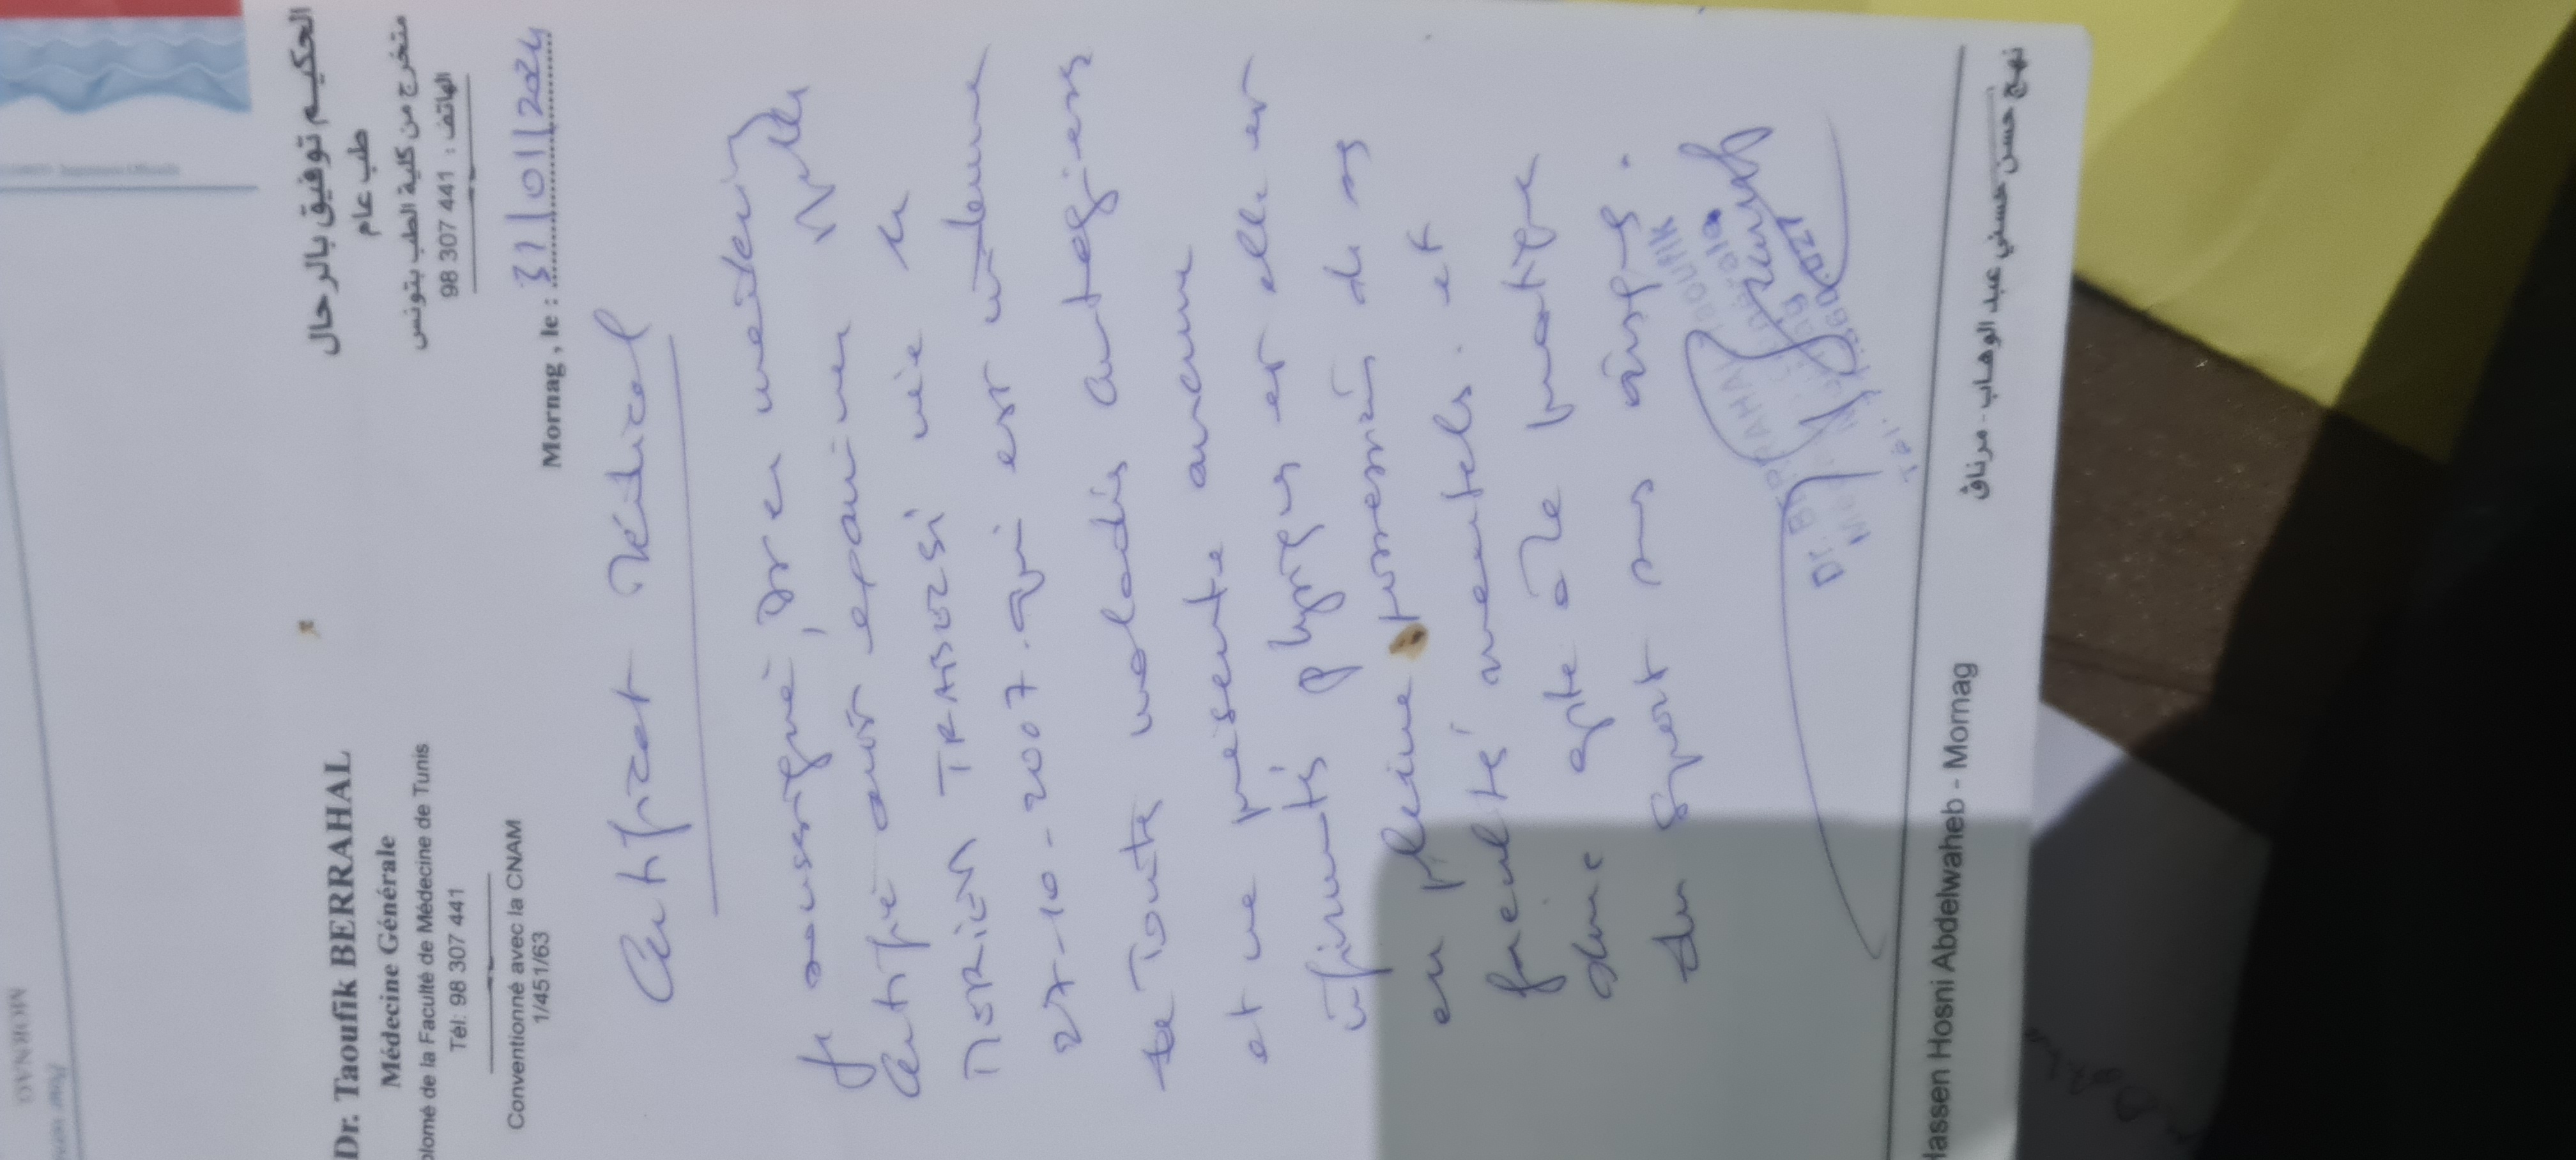 Dr. Taoufik BERRAHAL
Médecine Générale
plomé de la Faculté de Médecine de Tunis
Tél: 98 307 441
Conventionné avec la CNAM
1/451/63
الحكيم توفيق بالرحال
طب عام
متخرج من كلية الطب بتونس
الهاتف : 98 307 441
Mornag , le : 31/01/2024
Certificat Médical
Je soussigné, Dr en médecine
Certifie avoir examiner Mlle
TRABELSI née le
27-10-2007. qui est indemne
de toute maladie contagieuse
et ne présente aucune
infirmité physique et elle est
en pleine possession de ses
facultés mentales. et
donc apte à la pratique
du sport sans risque.
Dr. BERRAHAL TAOUFIK
Hassen Hosni Abdelwaheb - Mornag
نهج حسن حسني عبد الوهاب - مرناق
MORNAG